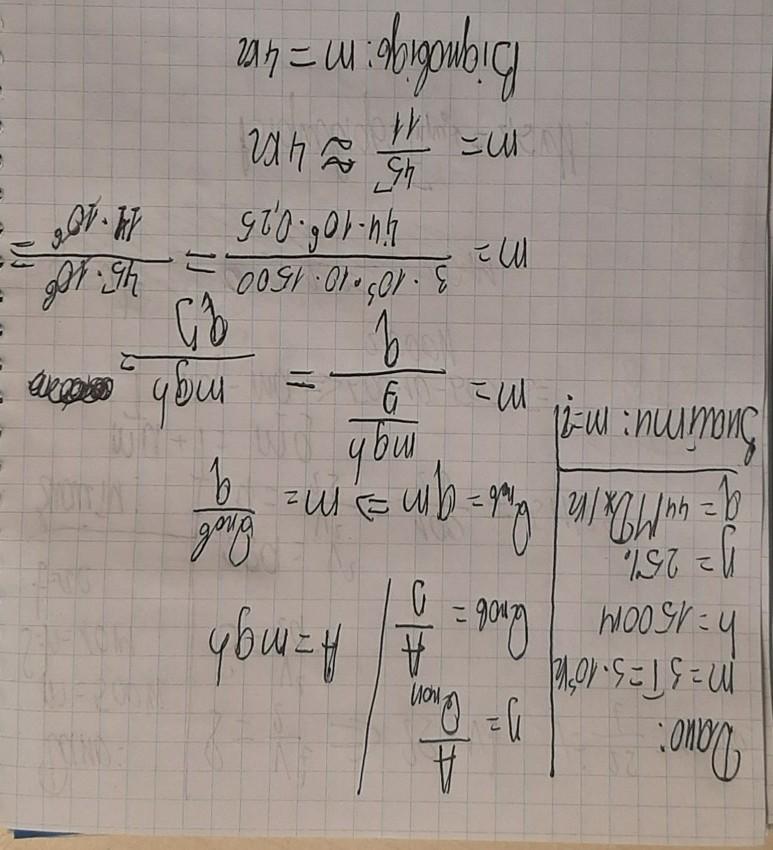 Дано:
m = 3T = 3·10³кг
h = 1500м
η = 25%
q = 44 МДж/кг
Знайти: m-?
η = A/Qпов
Qпов = A/η
A = mgh
Qпов = qm ⇒ m = Qпов/q
m = (mgh/η)/q = mgh/qη
m = 3·10³·10·1500/44·10⁶·0,25 = 45·10⁶/11·10⁶ =
m = 45/11 ≈ 4кг
Відповідь: m = 4кг